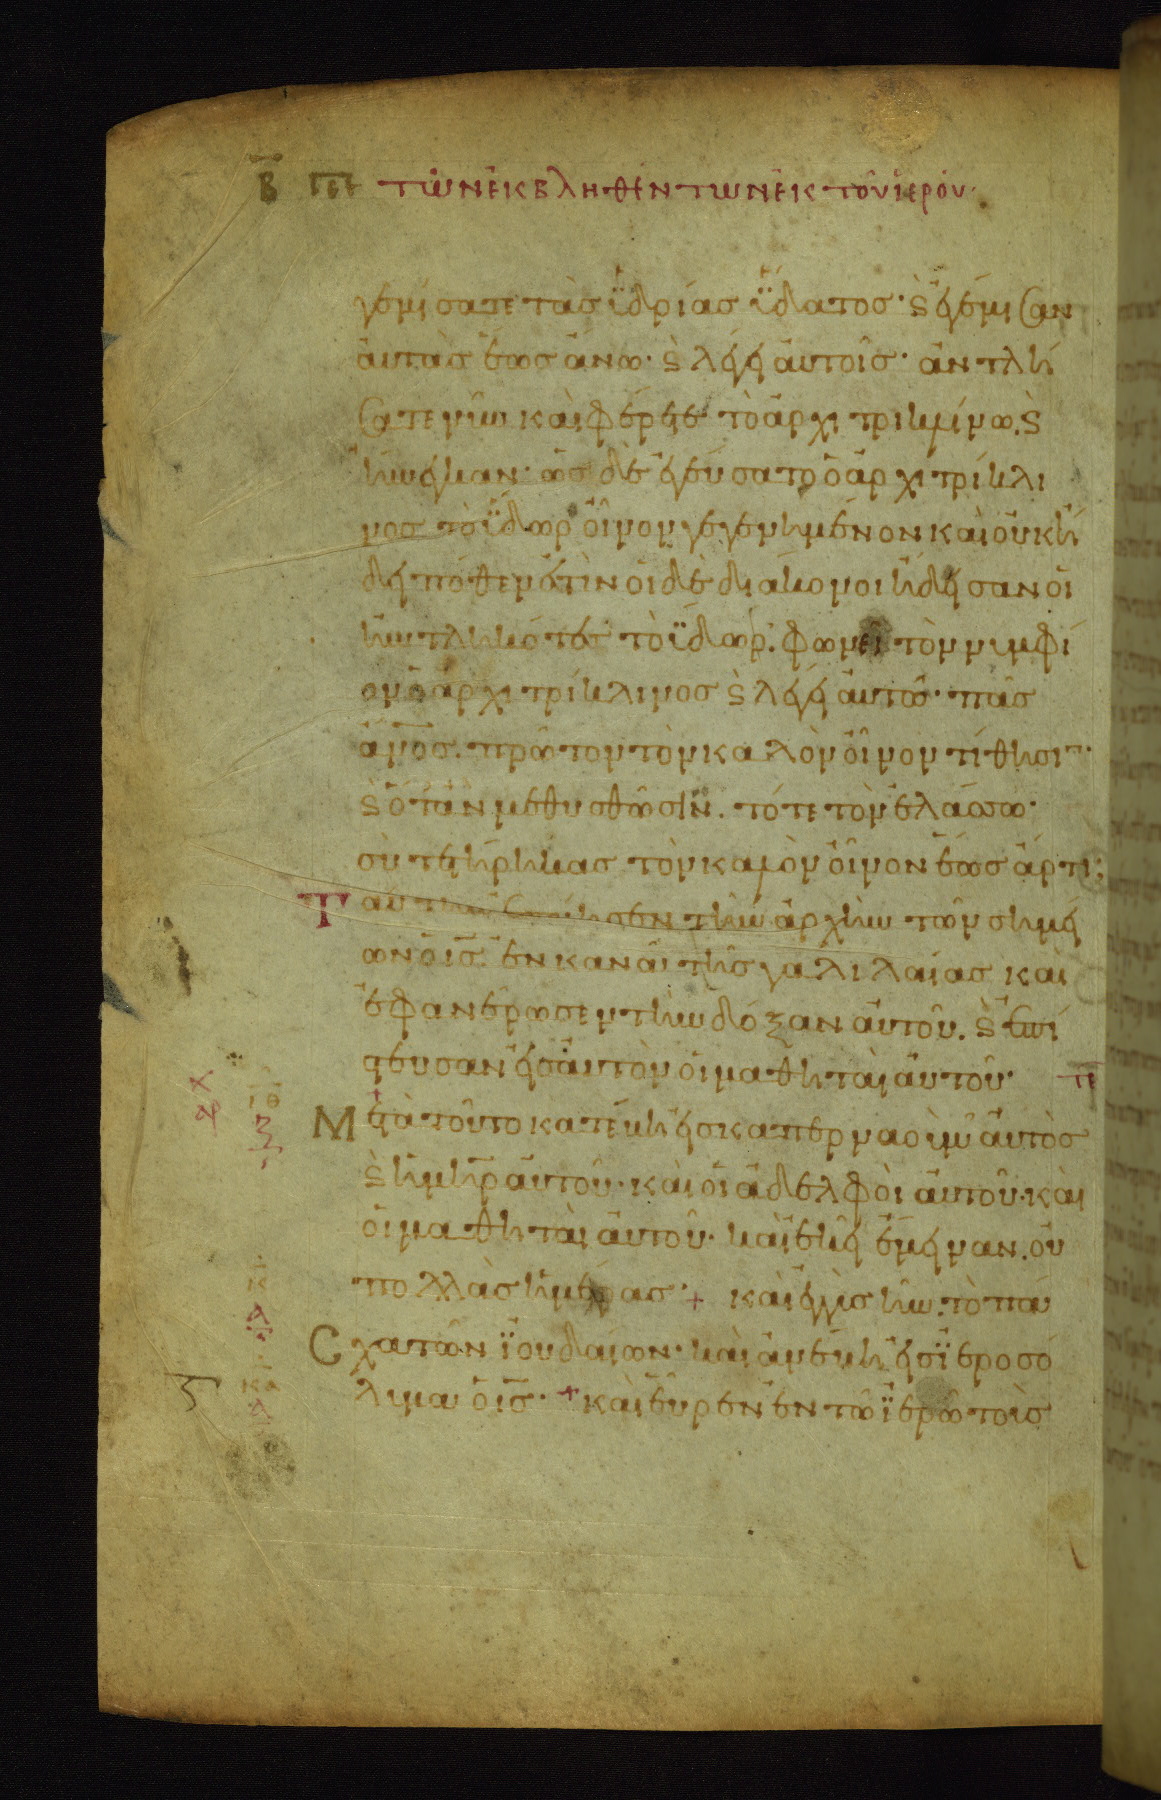 β περὶ τῶν ἐκβληθέντων ἐκ τοῦ ἱεροῦ·
γεμίσατε τὰς ὑδρίας ὕδατος· ϗ ἐγέμισαν
ἀυτὰς ἕως ἄνω· ϗ λέγει ἀυτοῖς· ἀντλή
σατε νῦν καὶ φέρετε τὸ ἀρχιτρικλίνω. ϗ
ἤνεγκαν· ὡς δὲ ἐγεύσατο ὁ ἀρχιτρίκλι
νος τὸ ὕδωρ οἶνον γεγενημένον καὶ οὐκ ἤ
δει πόθεν ἐστὶν οἱ δὲ διάκονοι ἤδησαν οἱ
ἠντληκότες τὸ ὕδωρ. φωνεῖ τὸν νυμφί
ον ὁ ἀρχιτρίκλινος ϗ λέγει ἀυτῶ· πᾶς
ἄνος. πρῶτον τὸν καλὸν οἶνον τίθησι·
ϗ ὅταν μεθυσθῶσιν. τότε τὸν ἐλάσσω·
σὺ τετήρηκας τὸν καλὸν οἶνον ἕως ἄρτι;
Ταύτην ἐποίησεν τὴν ἀρχὴν τῶν σημεί
ων ὁ ις. ἐν κανᾶ τῆς γαλιλαίας καὶ
ἐφανέρωσεν τὴν δόξαν ἀυτοῦ. ϗ ἐπί
στευσαν εἰς ἀυτὸν οἱ μαθηταὶ ἀυτοῦ· τε
Μετὰ τοῦτο κατέβη εἰς καπερναοὺμ ἀυτὸς
ϗ ἡ μηρ ἀυτοῦ· καὶ οἱ ἀδελφοὶ ἀυτοῦ· καὶ
οἱ μαθηταὶ ἀυτοῦ· καὶ ἐκεῖ ἔμειναν. οὐ
πολλὰς ἡμέρας· + καὶ ἐγγὺς ἦν. τὸ πά
Σχα τῶν ἰουδαίων· καὶ ἀνέβη εἰς ἱεροσό
λυμα ὁ ις· + καὶ εὗρεν ἐν τῶ ἱερῶ τοὺς